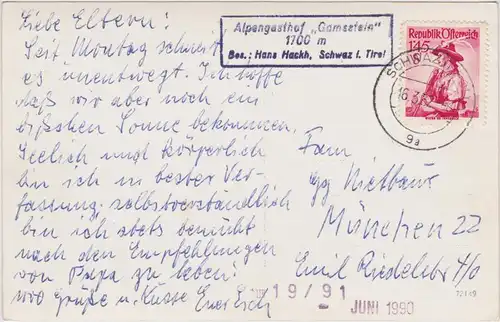 Liebe Eltern!
Seit Montag schneit
es unentwegt. Ich hoffe
daß wir aber noch ein
bißchen Sonne bekommen.
Seelich und körperlich
bin ich in bester Ver-
fassung. selbstverständlich
bin ich stets bemüht
nach den Empfehlungen
von Papa zu leben!
1000 Grüße u. Küsse Euer
Alpengasthof „Gamsstein"
1700 m
Bes.: Hans Hackh, Schwaz i. Tirol
Republik Österreich
1.45
SCHWAZ
16.3.
9a
Fam
München 22
Emil Riedelstr 4/0
19/91
- JUNI 1990